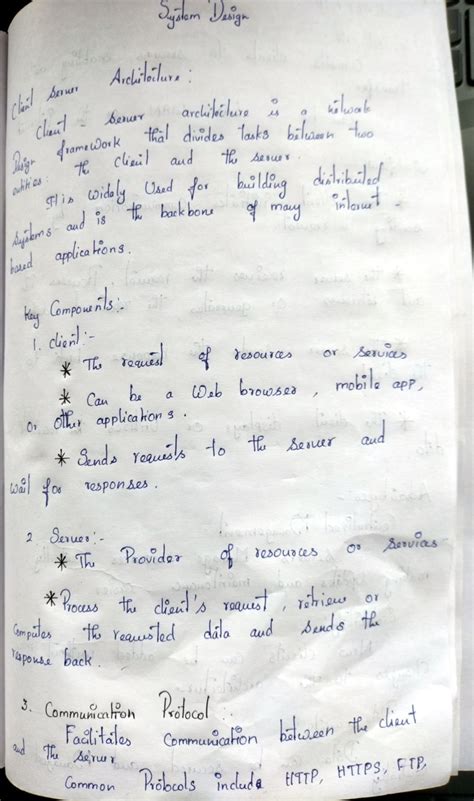 System Design
Client server Architecture :
Client - server architecture is a network
Design framework that divides tasks between two
entities : the client and the server.
It is widely used for building distributed
systems and is the backbone of many internet -
based applications.
Key Components :-
1. client :-
* The request of resources or services
* Can be a Web browser, mobile app,
or other applications.
* Sends requests to the server and
wait for responses.
2 Server :-
* The Provider of resources or services
* Process the client's request, retrieve or
Computes the requested data and sends the
response back.
3. Communication Protocol :
Facilitates Communication between the client
and the server
Common Protocols include HTTP, HTTPS, FTP,